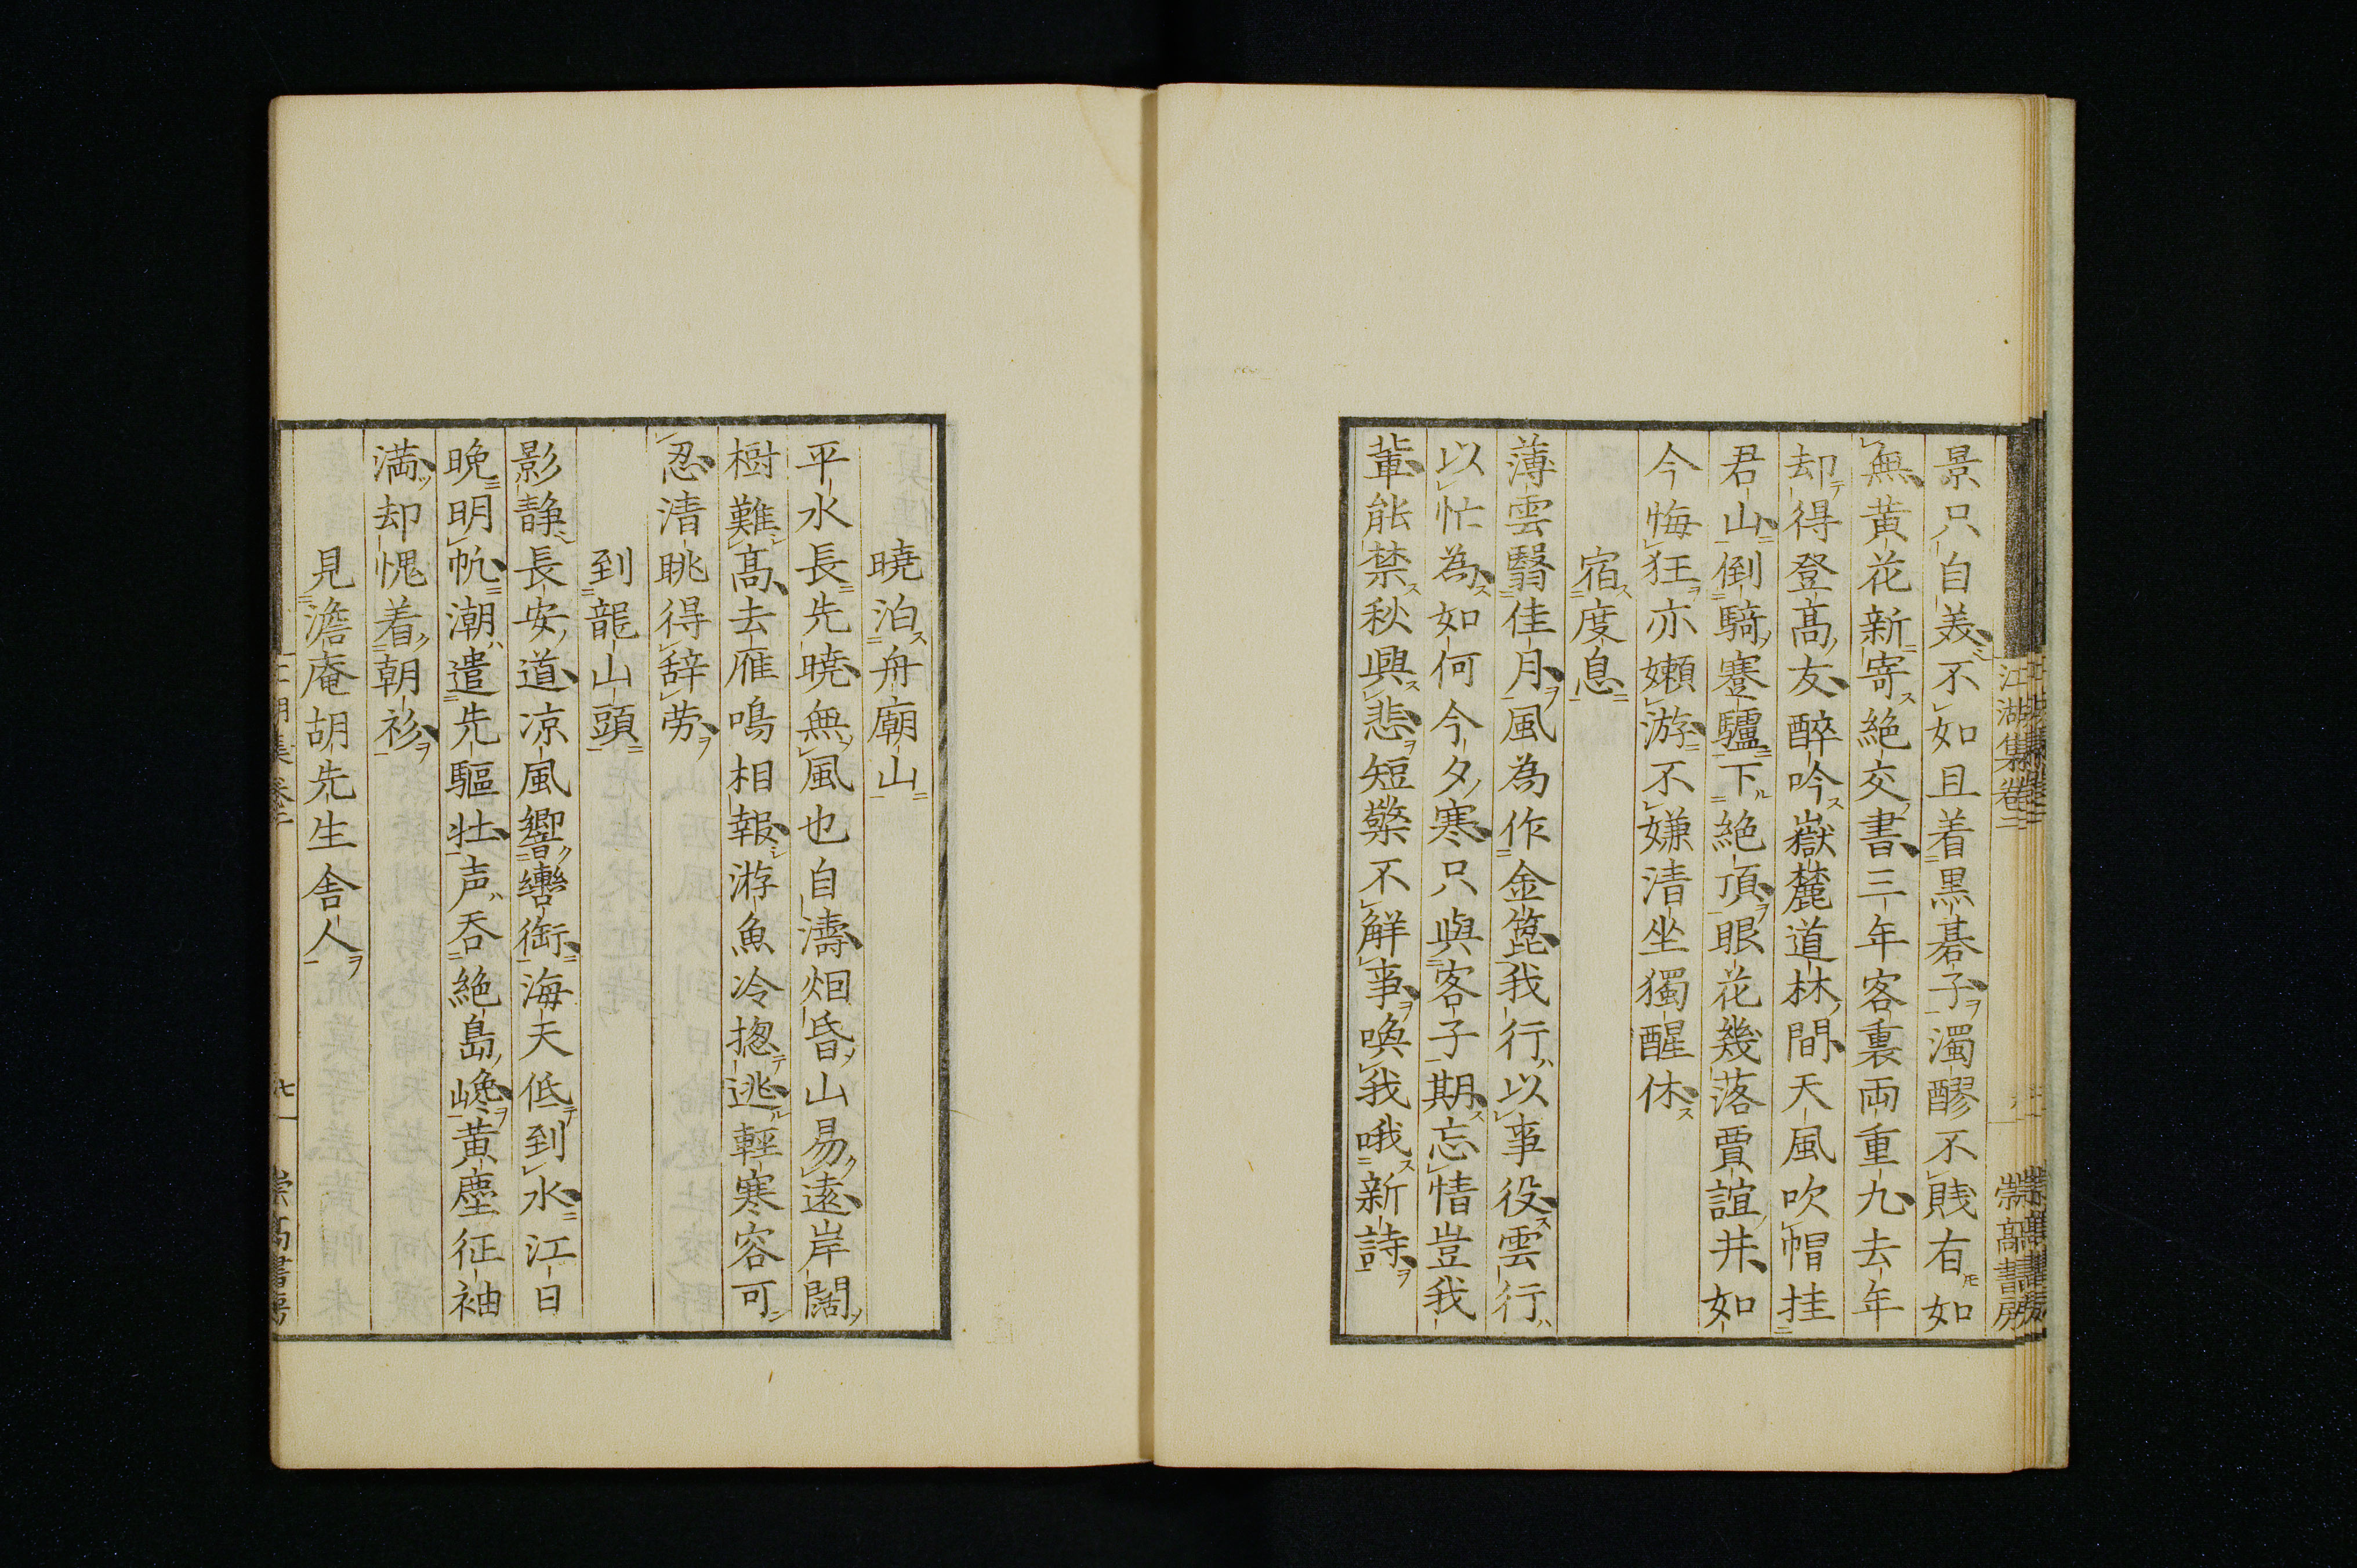 景只自美不如且着黒碁子濁醪不賎有如
無黄花新寄絶交書三年客裏両重九去年
却得登髙友醉吟嶽麓道林間天風吹帽挂
君山倒騎蹇驢下絶頂眼花幾落賈誼井如
今悔狂亦嬾游不嫌清坐獨醒休
宿度息
薄雲翳佳月風為作金篦我行以事役雲行
以忙為如何今夕寒只與客子期忘情豈我
輩能禁秋興悲短檠不解事喚我哦新詩
江湖集卷二
崇髙書房
曉泊舟廟山
平水長先曉無風也自濤烟昏山易遠岸闊
樹難髙去雁鳴相報游魚冷揔逃輕寒容可
忍清眺得辞劳
到龍山頭
影静長安道凉風響轡銜海天低到水江日
晩明帆潮遣先驅壮声吞絶島巉黄塵征袖
満却愧着朝衫
見澹庵胡先生舎人